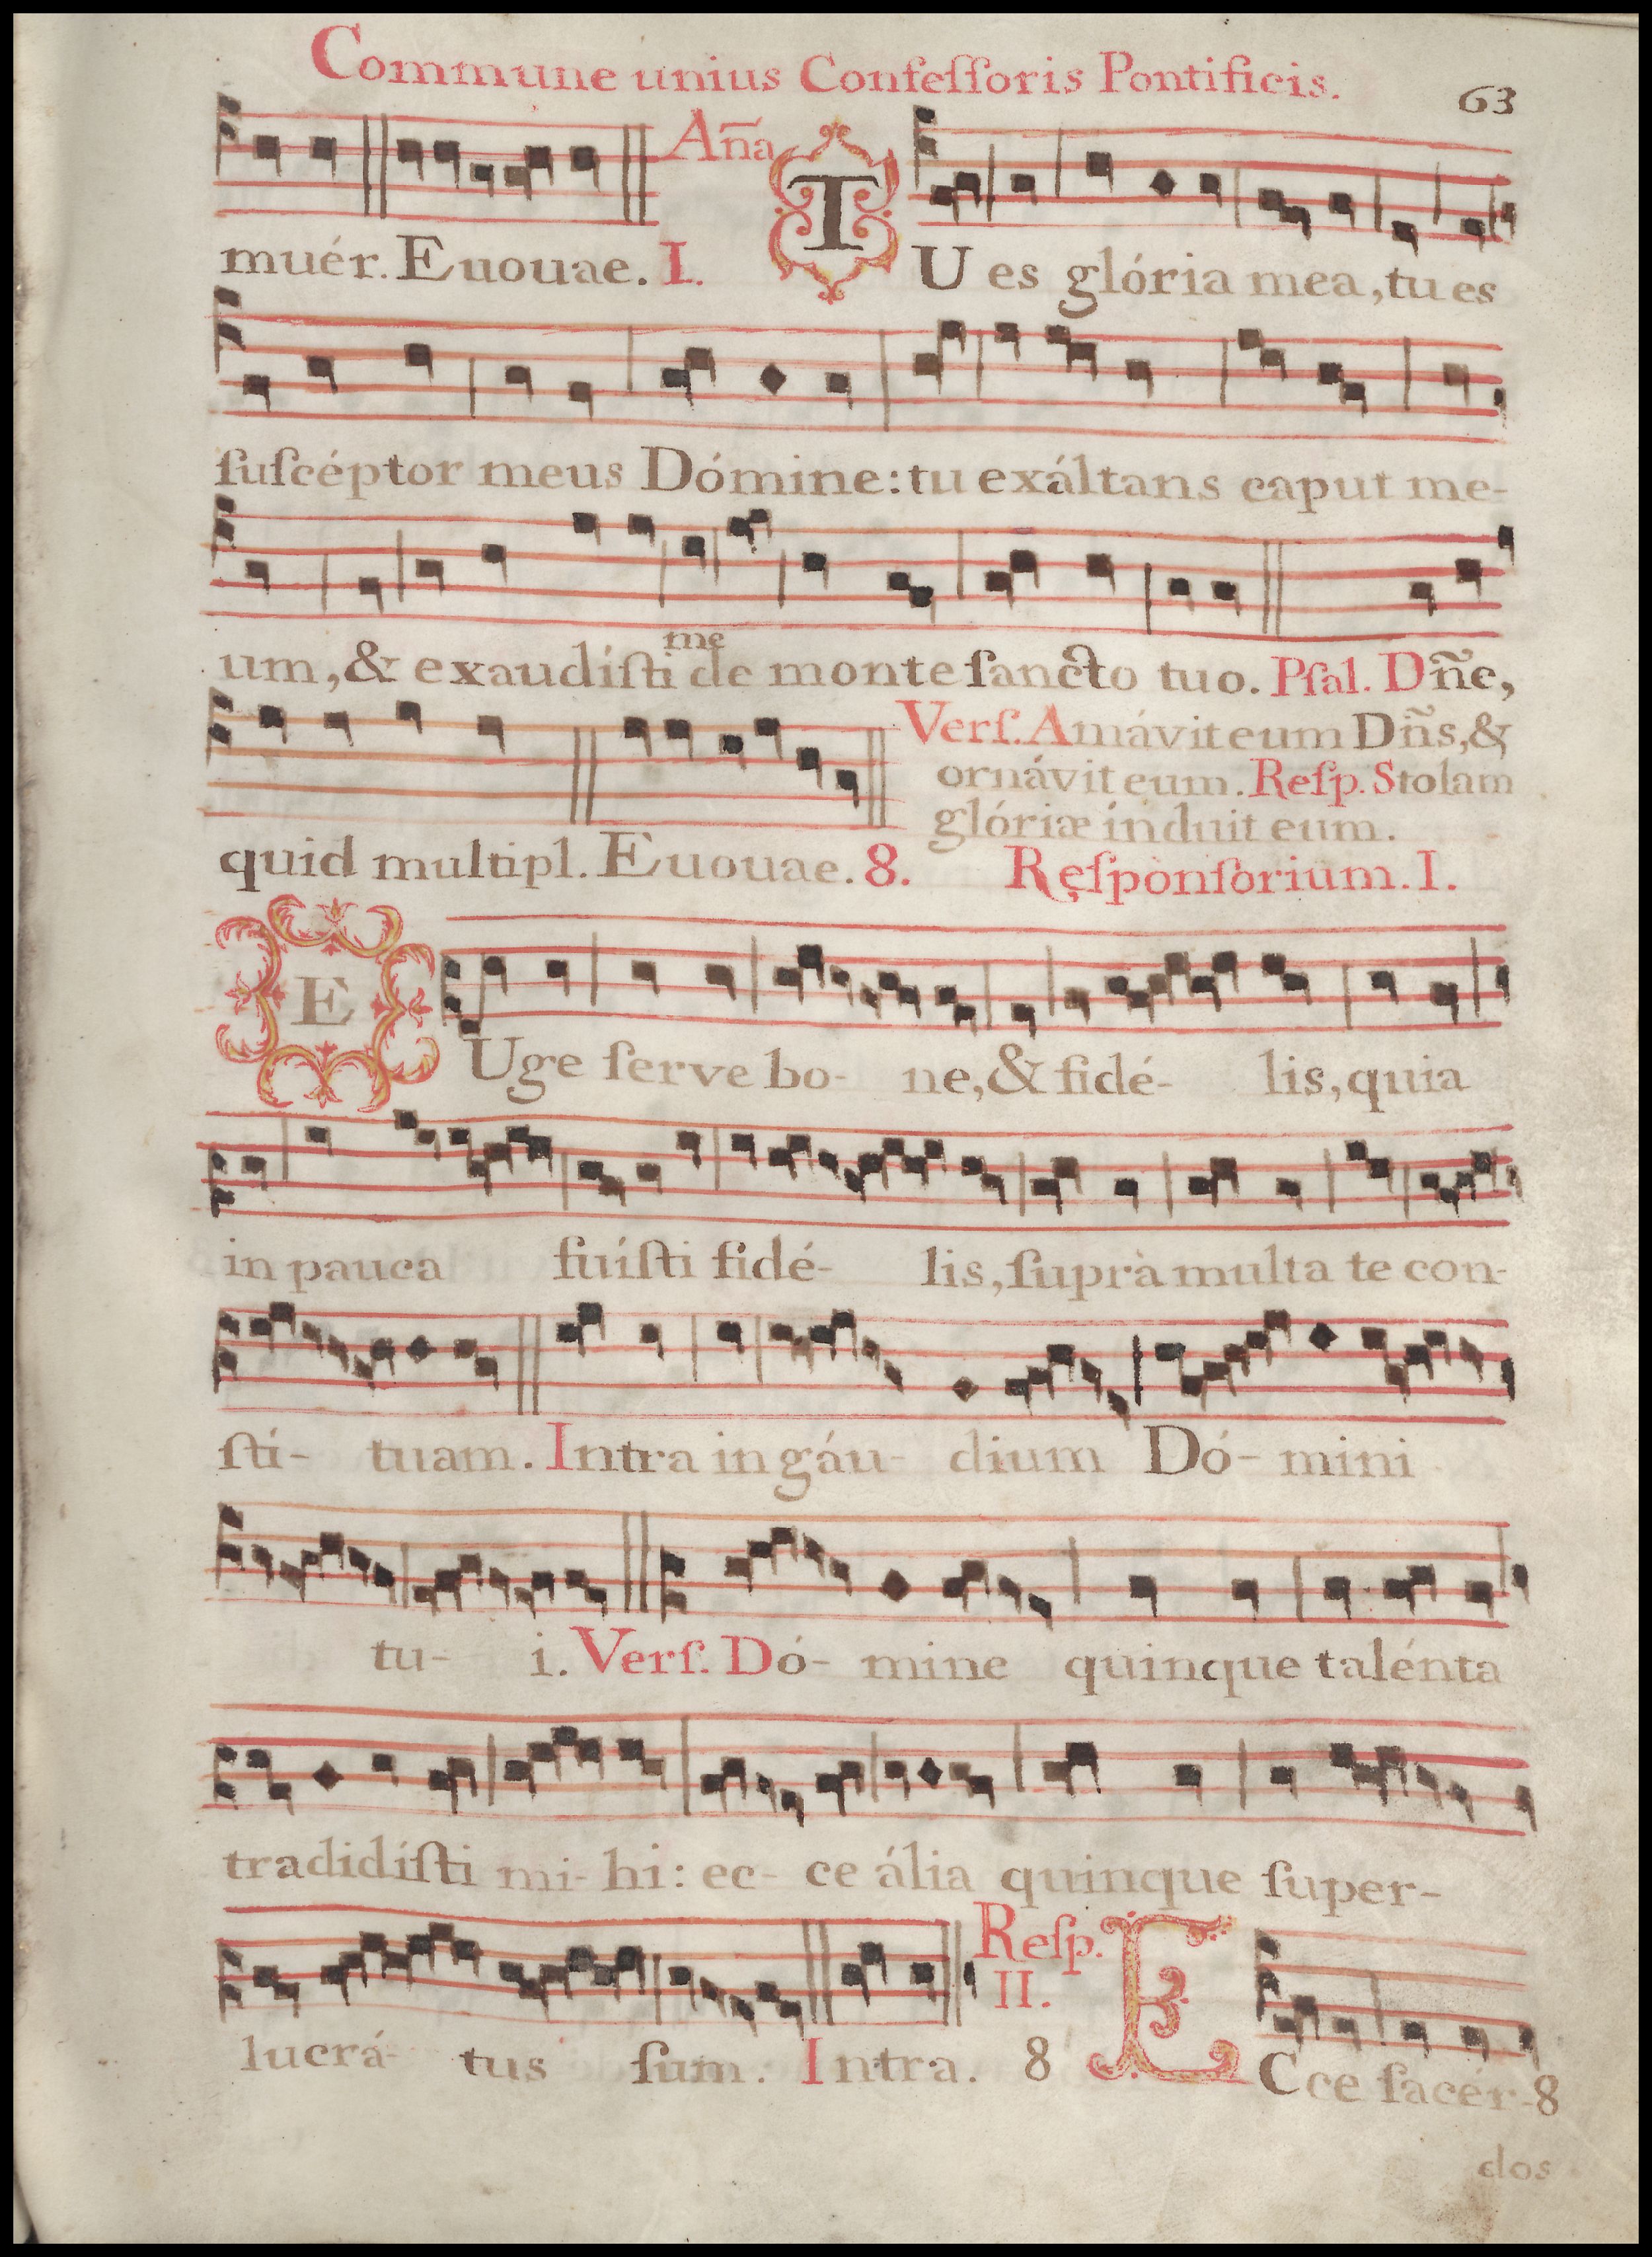 Commune unius Confeſſoris Pontificis.
63
Aña
muér. Euouae. I. TU es glória mea, tu es
ſuſcéptor meus Dómine: tu exáltans caput me-
me
um, & exaudíſti de monte ſancto tuo. Pſal. Dñe,
Verſ. Amávit eum Dñs, &
ornávit eum. Reſp. Stolam
glóriæ índuit eum.
quid multipl. Euouae. 8. Reſponſorium. I.
EUge ſerve bo- ne, & fidé- lis, quia
in pauca fuíſti fidé- lis, ſuprà multa te con-
ſtí- tuam. Intra in gáu- dium Dó- mini
tu- i. Verſ. Dó- mine quinque talénta
tradidíſti mi- hi: ec- ce ália quinque ſuper-
Reſp.
II.
lucrá- tus ſum. Intra. 8 ECce ſacér-8
dos